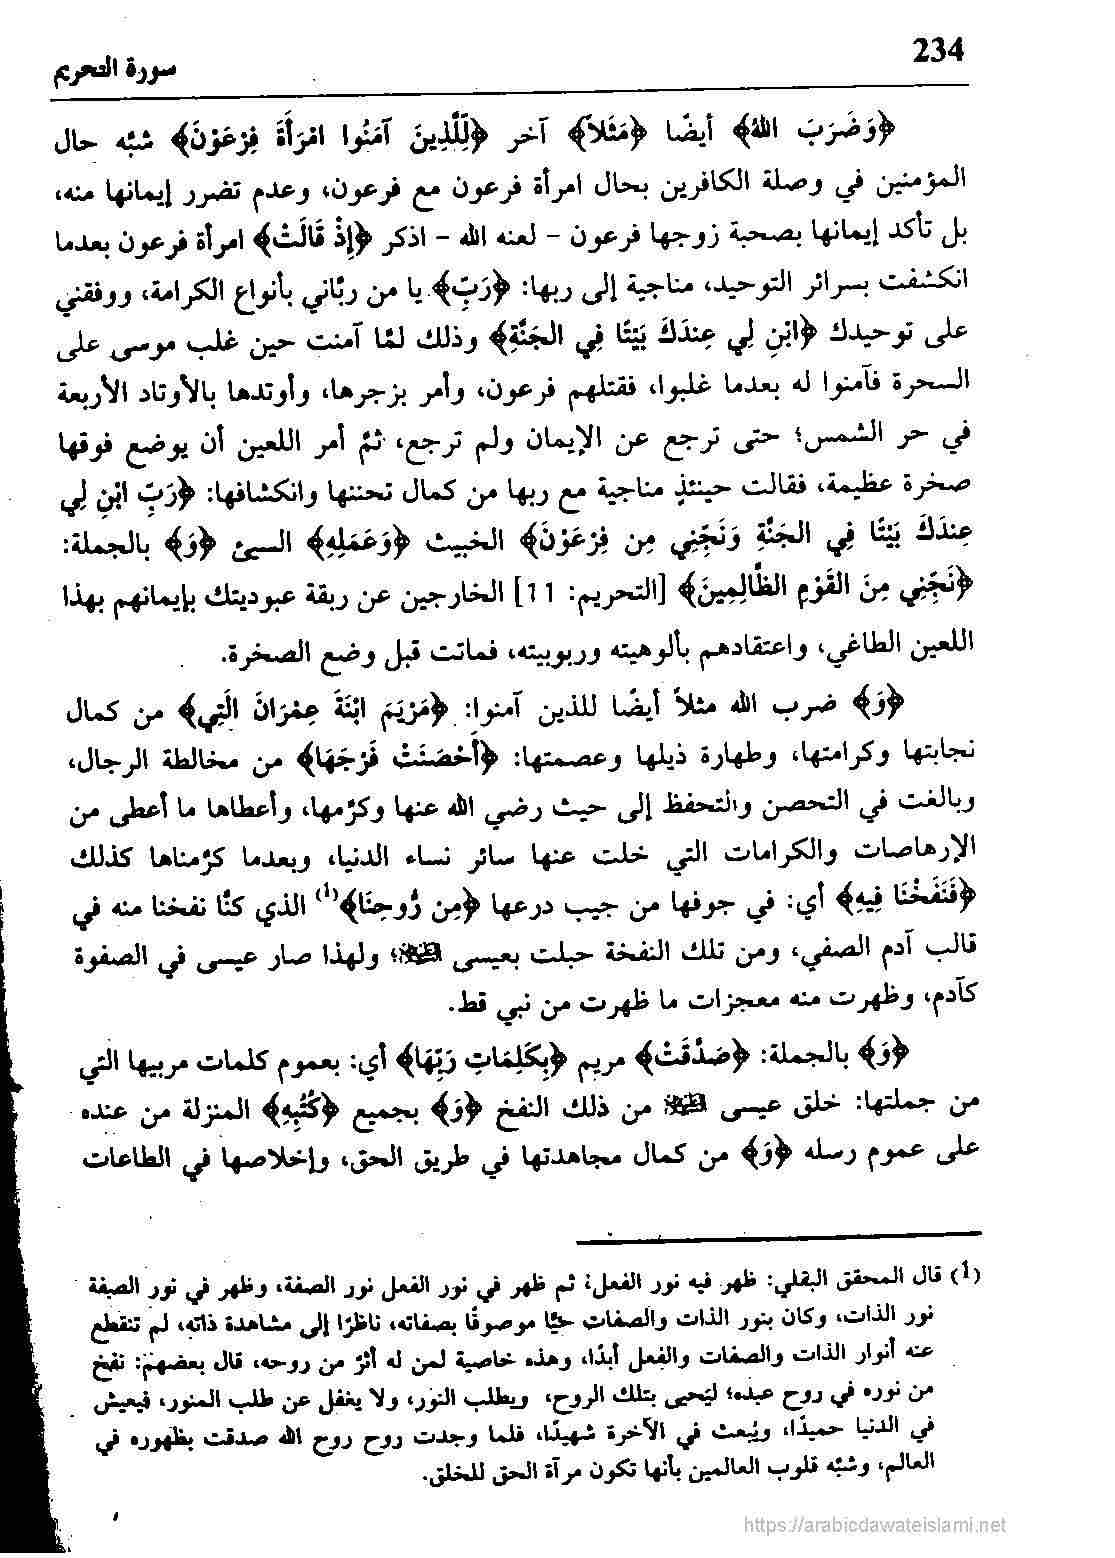 234
سورة التحريم
﴿وَضَرَبَ اللهُ﴾ أيضًا ﴿مَثَلاً﴾ آخر ﴿لِّلَّذِينَ آمَنُوا امْرَأَةَ فِرْعَوْنَ﴾ شبَّه حال
المؤمنين في وصلة الكافرين بحال امرأة فرعون مع فرعون، وعدم تضرر إيمانها منه،
بل تأكد إيمانها بصحبة زوجها فرعون - لعنه الله - اذكر ﴿إِذْ قَالَتْ﴾ امرأة فرعون بعدما
انكشفت بسرائر التوحيد، مناجية إلى ربها: ﴿رَبِّ﴾ يا من ربَّاني بأنواع الكرامة، ووفقني
على توحيدك ﴿ابْنِ لِي عِندَكَ بَيْتًا فِي الجَنَّةِ﴾ وذلك لمَّا آمنت حين غلب موسى على
السحرة فآمنوا له بعدما غلبوا، فقتلهم فرعون، وأمر بزجرها، وأوتدها بالأوتاد الأربعة
في حر الشمس؛ حتى ترجع عن الإيمان ولم ترجع، ثمَّ أمر اللعين أن يوضع فوقها
صخرة عظيمة، فقالت حينئذٍ مناجية مع ربها من كمال تحننها وانكشافها: ﴿رَبِّ ابْنِ لِي
عِندَكَ بَيْتًا فِي الجَنَّةِ وَنَجِّنِي مِن فِرْعَوْنَ﴾ الخبيث ﴿وَعَمَلِهِ﴾ السيئ ﴿وَ﴾ بالجملة:
﴿نَجِّنِي مِنَ القَوْمِ الظَّالِمِينَ﴾ [التحريم: 11] الخارجين عن ربقة عبوديتك بإيمانهم بهذا
اللعين الطاغي، واعتقادهم بألوهيته وربوبيته، فماتت قبل وضع الصخرة.
﴿وَ﴾ ضرب الله مثلاً أيضًا للذين آمنوا: ﴿مَرْيَمَ ابْنَةَ عِمْرَانَ الَتِي﴾ من كمال
نجابتها وكرامتها، وطهارة ذيلها وعصمتها: ﴿أَحْصَنَتْ فَرْجَهَا﴾ من مخالطة الرجال،
وبالغت في التحصن والتحفظ إلى حيث رضي الله عنها وكرَّمها، وأعطاها ما أعطى من
الإرهاصات والكرامات التي خلت عنها سائر نساء الدنيا، وبعدما كرَّمناها كذلك
﴿فَنَفَخْنَا فِيهِ﴾ أي: في جوفها من جيب درعها ﴿مِن رُّوحِنَا﴾(1) الذي كنَّا نفخنا منه في
قالب آدم الصفي، ومن تلك النفخة حبلت بعيسى عليه السلام؛ ولهذا صار عيسى في الصفوة
كآدم، وظهرت منه معجزات ما ظهرت من نبي قط.
﴿وَ﴾ بالجملة: ﴿صَدَّقَتْ﴾ مريم ﴿بِكَلِمَاتِ رَبِّهَا﴾ أي: بعموم كلمات مربيها التي
من جملتها: خلق عيسى عليه السلام من ذلك النفخ ﴿وَ﴾ بجميع ﴿كُتُبِهِ﴾ المنزلة من عنده
على عموم رسله ﴿وَ﴾ من كمال مجاهدتها في طريق الحق، وإخلاصها في الطاعات
(1) قال المحقق البقلي: ظهر فيه نور الفعل؛ ثم ظهر في نور الفعل نور الصفة، وظهر في نور الصفة
نور الذات، وكان بنور الذات والصفات حيًّا موصوفًا بصفاته، ناظرًا إلى مشاهدة ذاته، لم تنقطع
عنه أنوار الذات والصفات والفعل أبدًا، وهذه خاصية لمن له أثرٌ من روحه، قال بعضهم: نفخ
من نوره في روح عبده؛ ليَحيى بتلك الروح، ويطلب النور، ولا يغفل عن طلب المنور، فيعيش
في الدنيا حميدًا، ويُبعث في الآخرة شهيدًا، فلما وجدت روح روح الله صدقت بظهوره في
العالم، وشبَّه قلوب العالمين بأنها تكون مرآة الحق للخلق.
https://arabicdawateislami.net